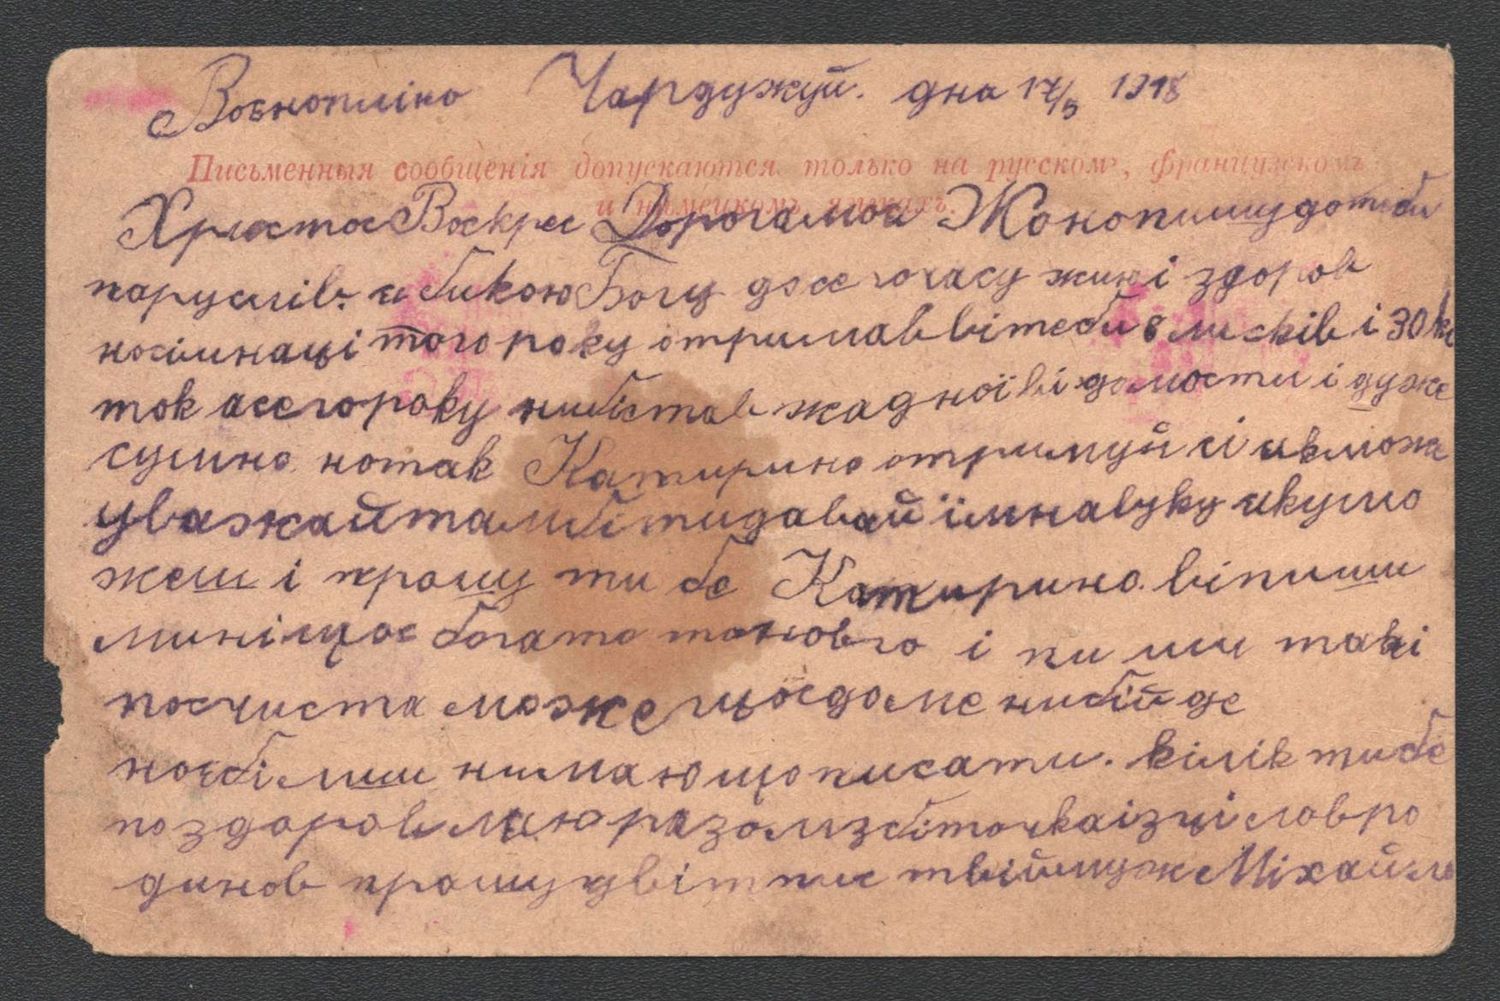 Воєнопліно Чарджуй. дна 17/3 1918
Письменныя сообщенія допускаются только на русскомъ, французскомъ
и нѣмецкомъ языкахъ.
Христос Воскрес Дорога моя Жоно пишу до тиби
пару слів. дос его часу жию і здоров
того року отримав ві теби 8 лисків і 30
ток а сего року жадної ві домости і дуже
сумно но так Катирино отримуй сі як може
уважай там діти давай їм на вуку яку мо
жеш і прошу ти бе Катирино ві пиши
мині щос богато та нового і пи ши такі
посчиста може щос доме ни бій де
ни маю що писати. кілік ти бе
поздоровляю разом з діточка і зці лов ро
динов прошу о двіт пис твій муж Міхайло